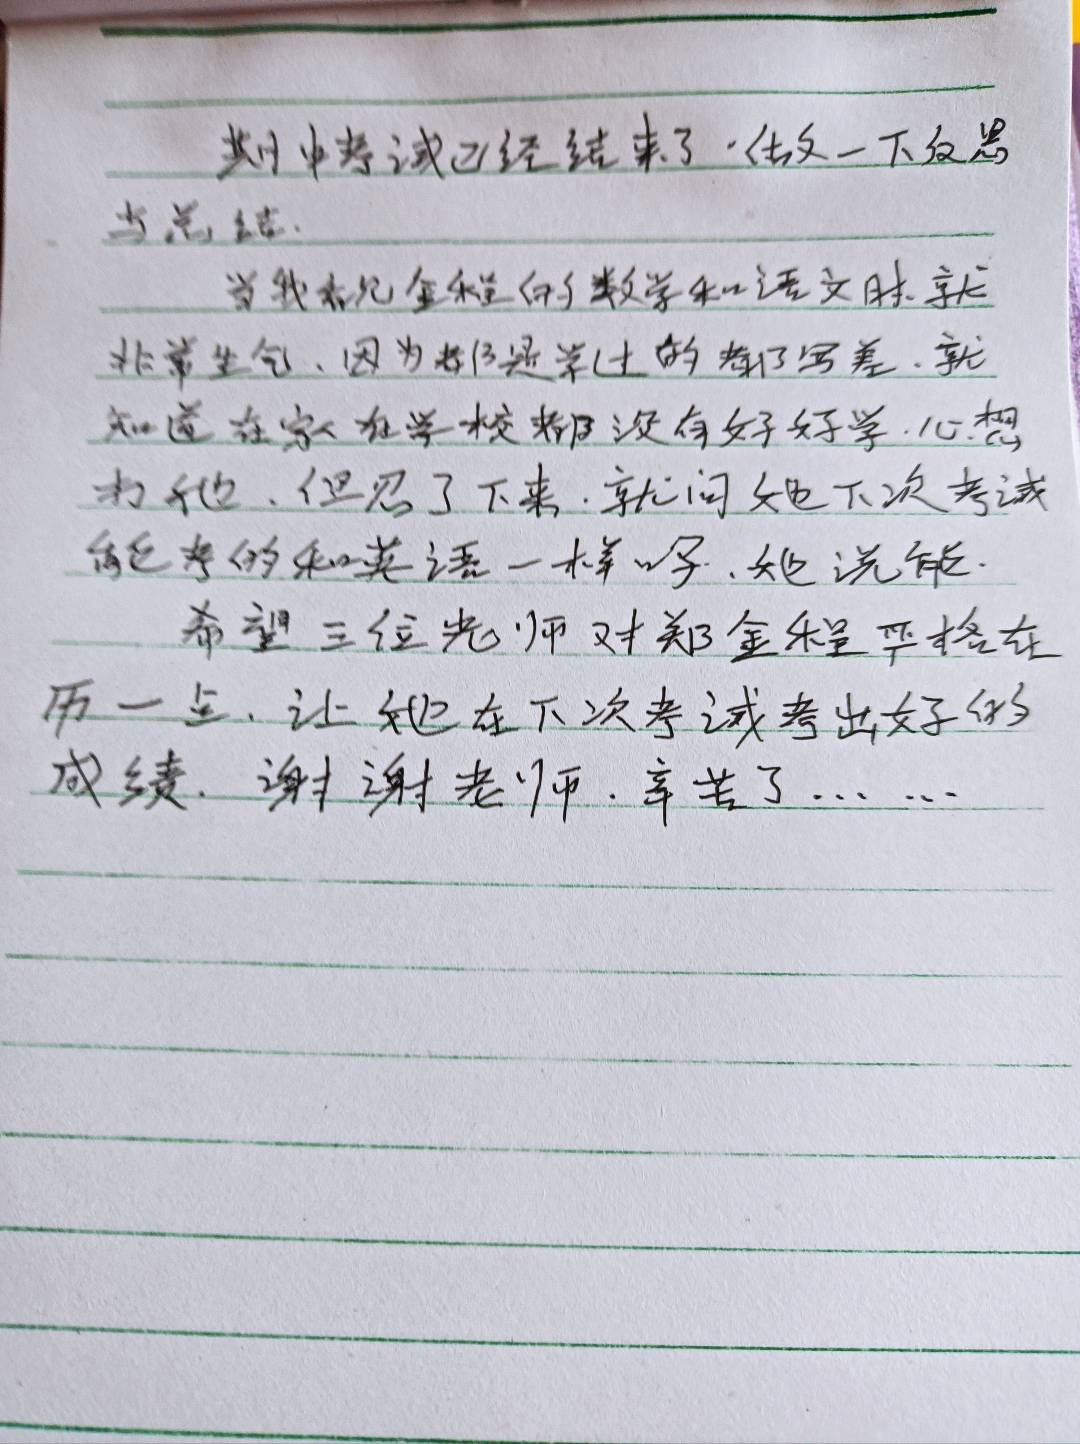 期中考试已经结束了.做一下反思
与总结.
当我看见金程的数学和语文时.就
非常生气、因为都是学过的都写差.就
知道在家在学校都没有好好学.心想
打她、但忍了下来.就问她下次考试
能考的和英语一样好.她说能.
希望三位老师对郑金程严格在
历一点、让她在下次考试考出好的
成绩.谢谢老师.辛苦了……